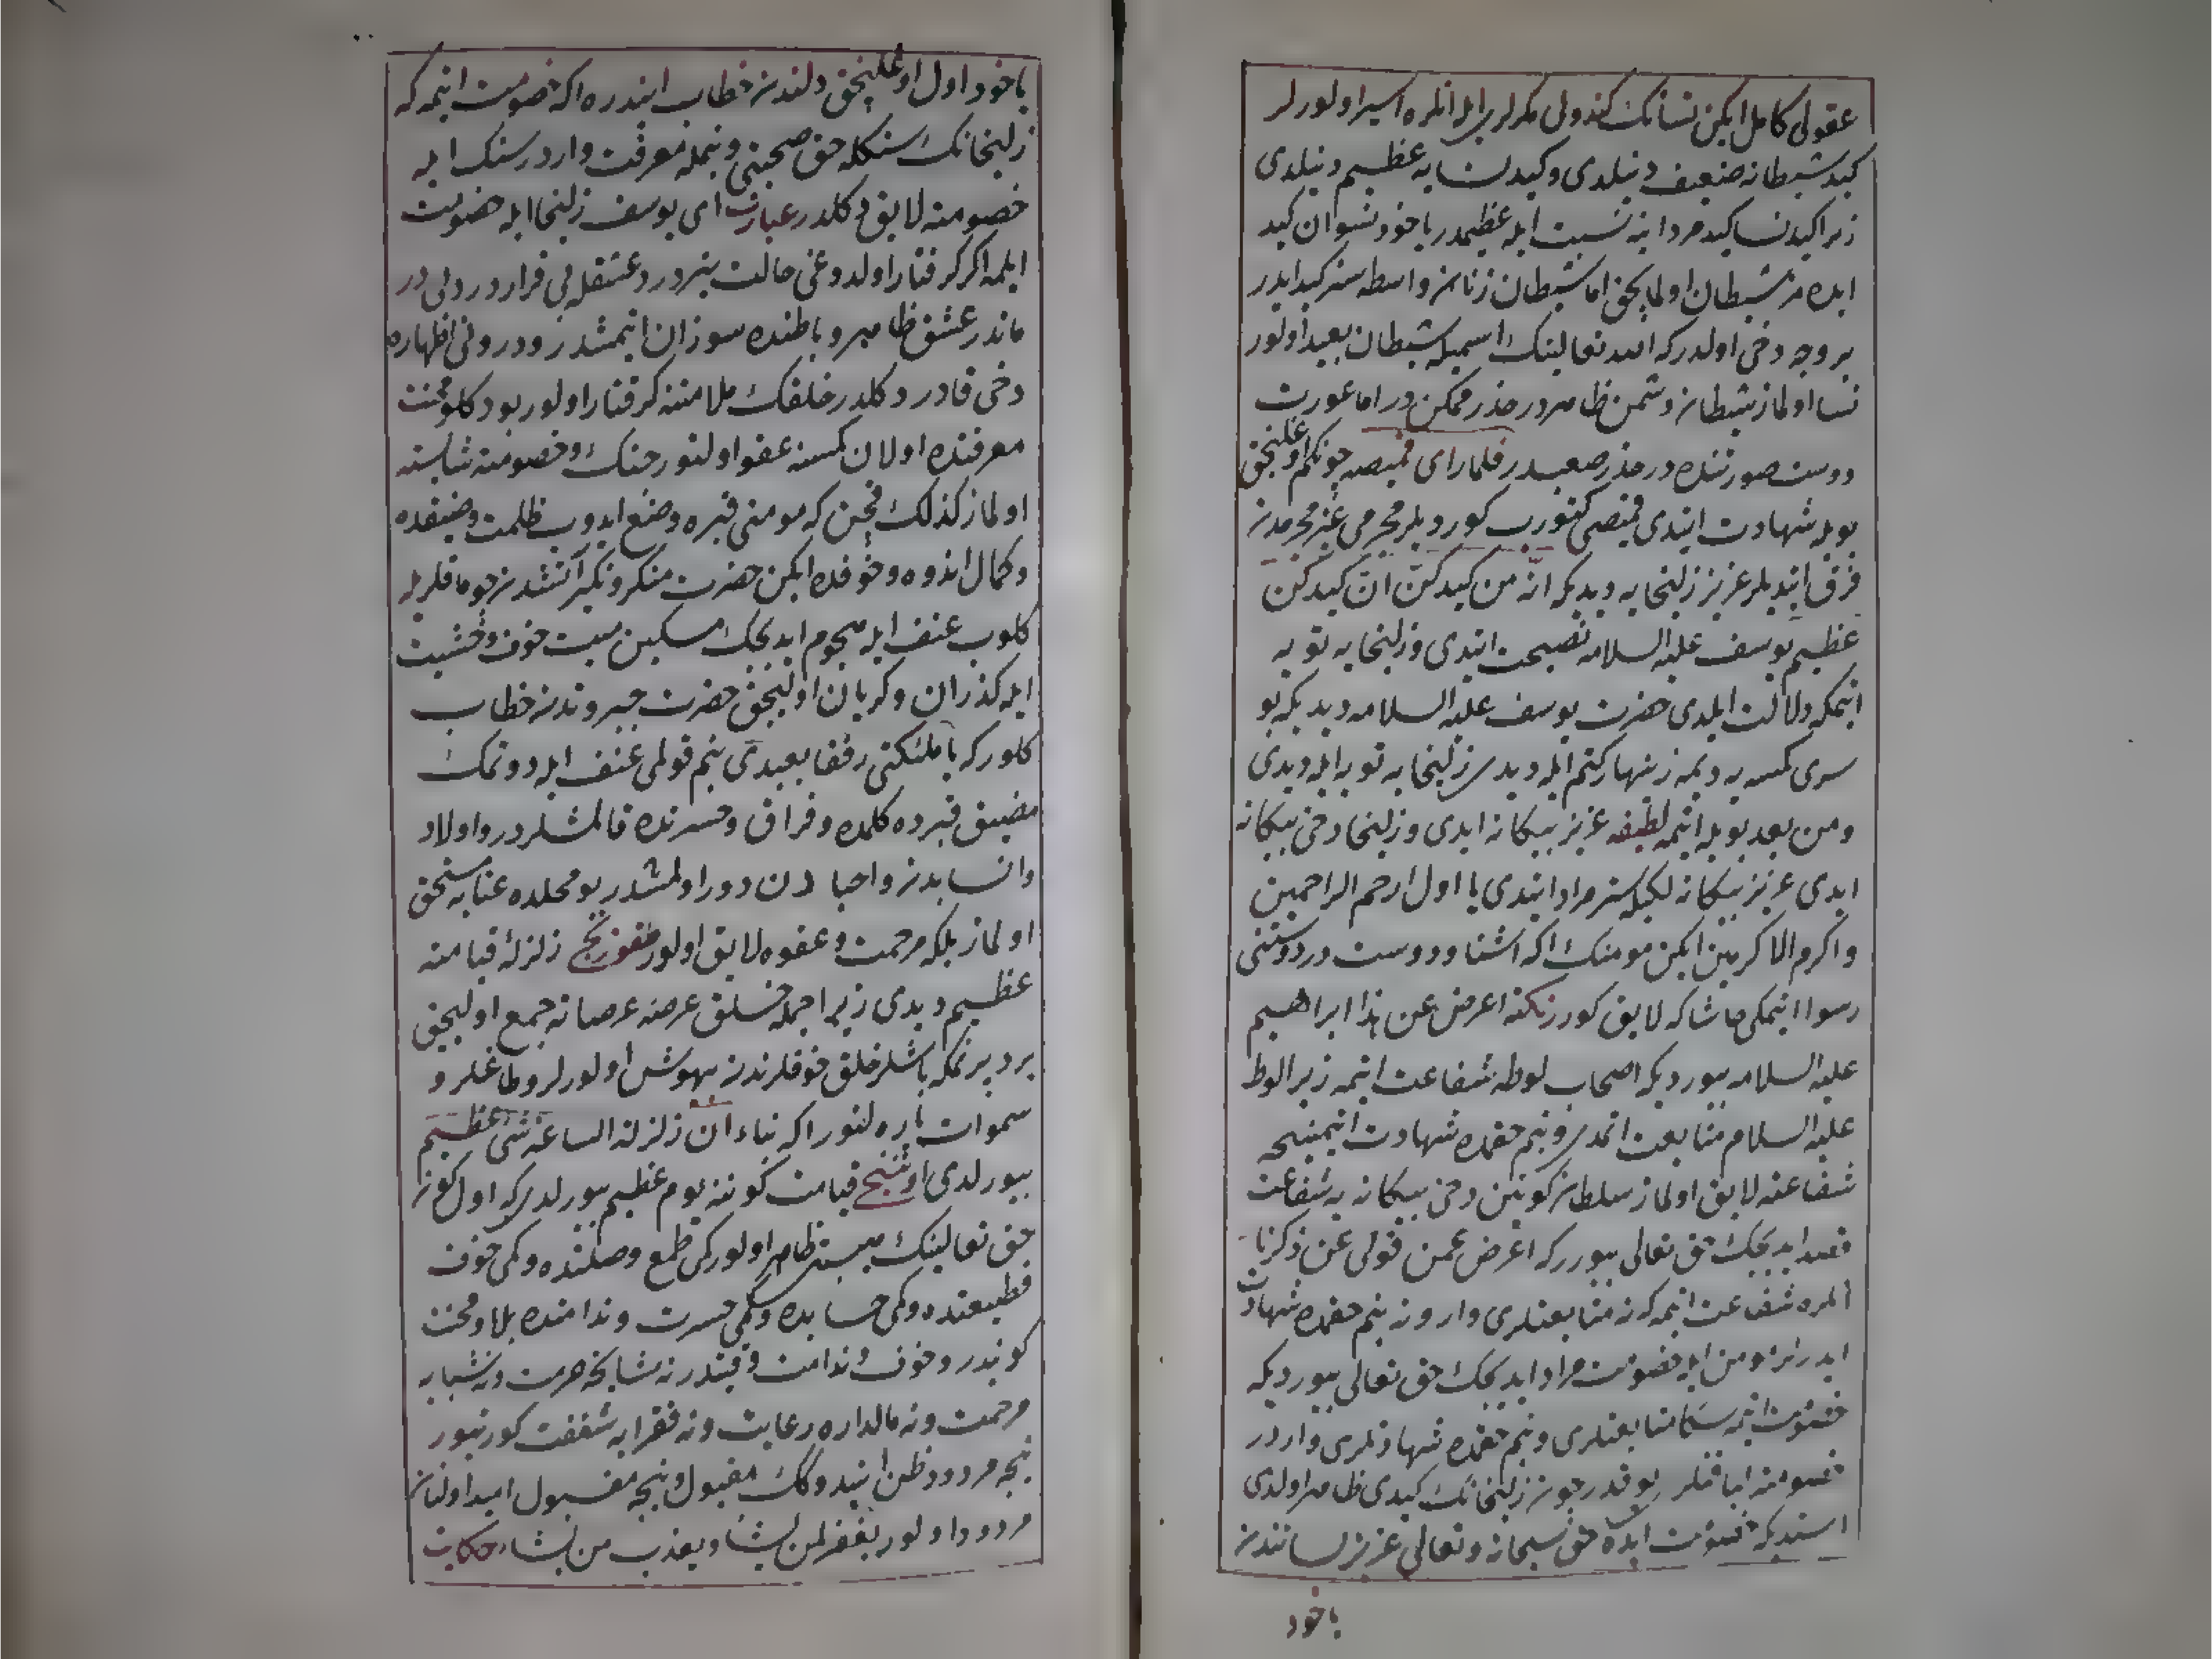 عقولی کامل ایکن نسانک کندولی مکرلری ایله انلره اسیر اولورلر
کید شیطانه ضعیف دنیلدی و کید نسایه عظیم دنیلدی
زیرا کید نسا کید مردانه نسبت ایله عظیمدر یاخود نسوان کید
ایده مز شیطان اولمایجق اما شیطان زنانسز واسطه سز کید ایدر
بر وجه دخی اولدر که الله تعالینک اسمیله شیطان بعید اولور
نسا اولماز شیطان دشمن ظاهردر حذر ممکن در اما عورت
دوست صورتنده در حذر صعبدر فلما رای قمیصه چونکم اوغلنجق
بویله شهادت ایتدی قمیصی کتورب کوردیلر مجرمی غیر مجرمدن
فرق ایتدیلر عزیز زلیخایه دیدیکه انه من کیدکن ان کیدکن
عظیم یوسف علیه السلامه نصیحت ایتدی و زلیخایه توبه
ایتمکه دلالت ایلدی حضرت یوسف علیه السلامه دیدیکه بو
سری کمسه یه دیمه زینهار کتم ایله دیدی زلیخایه توبه ایله دیدی
ومن بعد بویله ایتمه لطیفه عزیز بیکانه ایدی و زلیخا دخی بیکانه
ایدی عزیز بیکانه لکیله ستر مراد ایتدی یا اول ارحم الراحمین
و اکرم الاکرمین ایکن مومنک اکه اشنا و دوست در دوستنی
رسوا ایتمکی حاشا که لایق کورر نکته اعرض عن هذا ابراهیم
علیه السلامه بیوردیکه اصحاب لوطه شفاعت ایتمه زیرا لوط
علیه السلام متابعت اتمدی و بنم حقمده شهادت ایتمینجه
شفاعته لایق اولماز سلطان کونین دخی بیکانه یه شفاعت
قصد ایدیجک حق تعالی بیورر که اعرض عمن تولی عن ذکرنا
انلره شفاعت ایتمه که نه متابعتلری وار و نه بنم حقمده شهادت
ایدرلر مومن ایله خصومت مراد ایدیجک حق تعالی بیوردیکه
خصومت ایتمه سکا متابعتلری و بنم حقمده شهادتلری واردر
خصومته لیاقتلری یوقدر چون زلیخانک کیدی ظاهر اولدی
استدیکه خصومت ایده حق سبحانه و تعالی عزیز لسانندن
یاخود
یاخود اول اوغلنجق دلندن خطاب ایتدره اکه خصومت ایتمه که
زلیخانک سنکله حق صحبتی و بنمله معرفت واردر سنک ایله
خصومته لایق دکلدر عبارت ای یوسف زلیخا ایله خصومت
ایلمه اکر کرفتار اولدوغی حالت بزدر درد عشقله بی قراردر دلی در
ماندر عشق ظاهر و باطنده سوزان ایتمشدر و درونی اظهاره
دخی قادر دکلدر خلقک ملامتنه کرفتار اولور بو دکلو محنت
معرفنده اولان کمسنه عفو اولنور جنک و خصومته شایسته
اولماز کذلک قچن که مومنی قبره وضع ایدوب ظلمت و ضیقده
و کمال اندوه و خوفده ایکن حضرت منکر و نکیر آتشدن چوماقلریله
کلوب عنف ایله هجوم ایدیجک مسکین میت خوف و خشیت
ایله کذران و کریان اولیجق حضرت جبروتدن خطاب
کلور که یا ملئکتی رفقا بعبدی بنم قولمی عنف ایله دوتمک
مضیق قبرده کلمده و فراق و حسرتده قالمشلردر و اولاد
و انسابدن و احبادن دور اولمشدر بو محلده عتابه مستحق
اولماز بلکه مرحمت و عفوه لایق اولور زلزلۀ قیامته
عظیم دیدی زیرا جمله خلق عرصه عرصاته جمع اولیجق
یر دپرنمکه باشلر خلق خوفلرندن بیهوش اولورلر و طاغلر و
سموات پاره لنور اکه بناء ان زلزلة الساعة شیء عظیم
بیورلدی اوتنجی قیامت کوننه یوم عظیم بیورلدی که اول کون
حق تعالینک هیبتی ظاهر اولور کمی طمع وصلنده و کمی خوف
قطیعتده و کمی حسابده و کمی حسرت و ندامتده بلا و محنت
کونیدر و خوف و ندامت وقتیدر نه مشایخه حرمت و نه شبابه
مرحمت و نه مالداره رعایت و نه فقرایه شفقت کورینور
نیجه مردود ظن ایتدوکک مقبول و نیجه مقبول امید اولنان
مردود اولور یغفر لمن یشاء و یعذب من یشاء حکایت